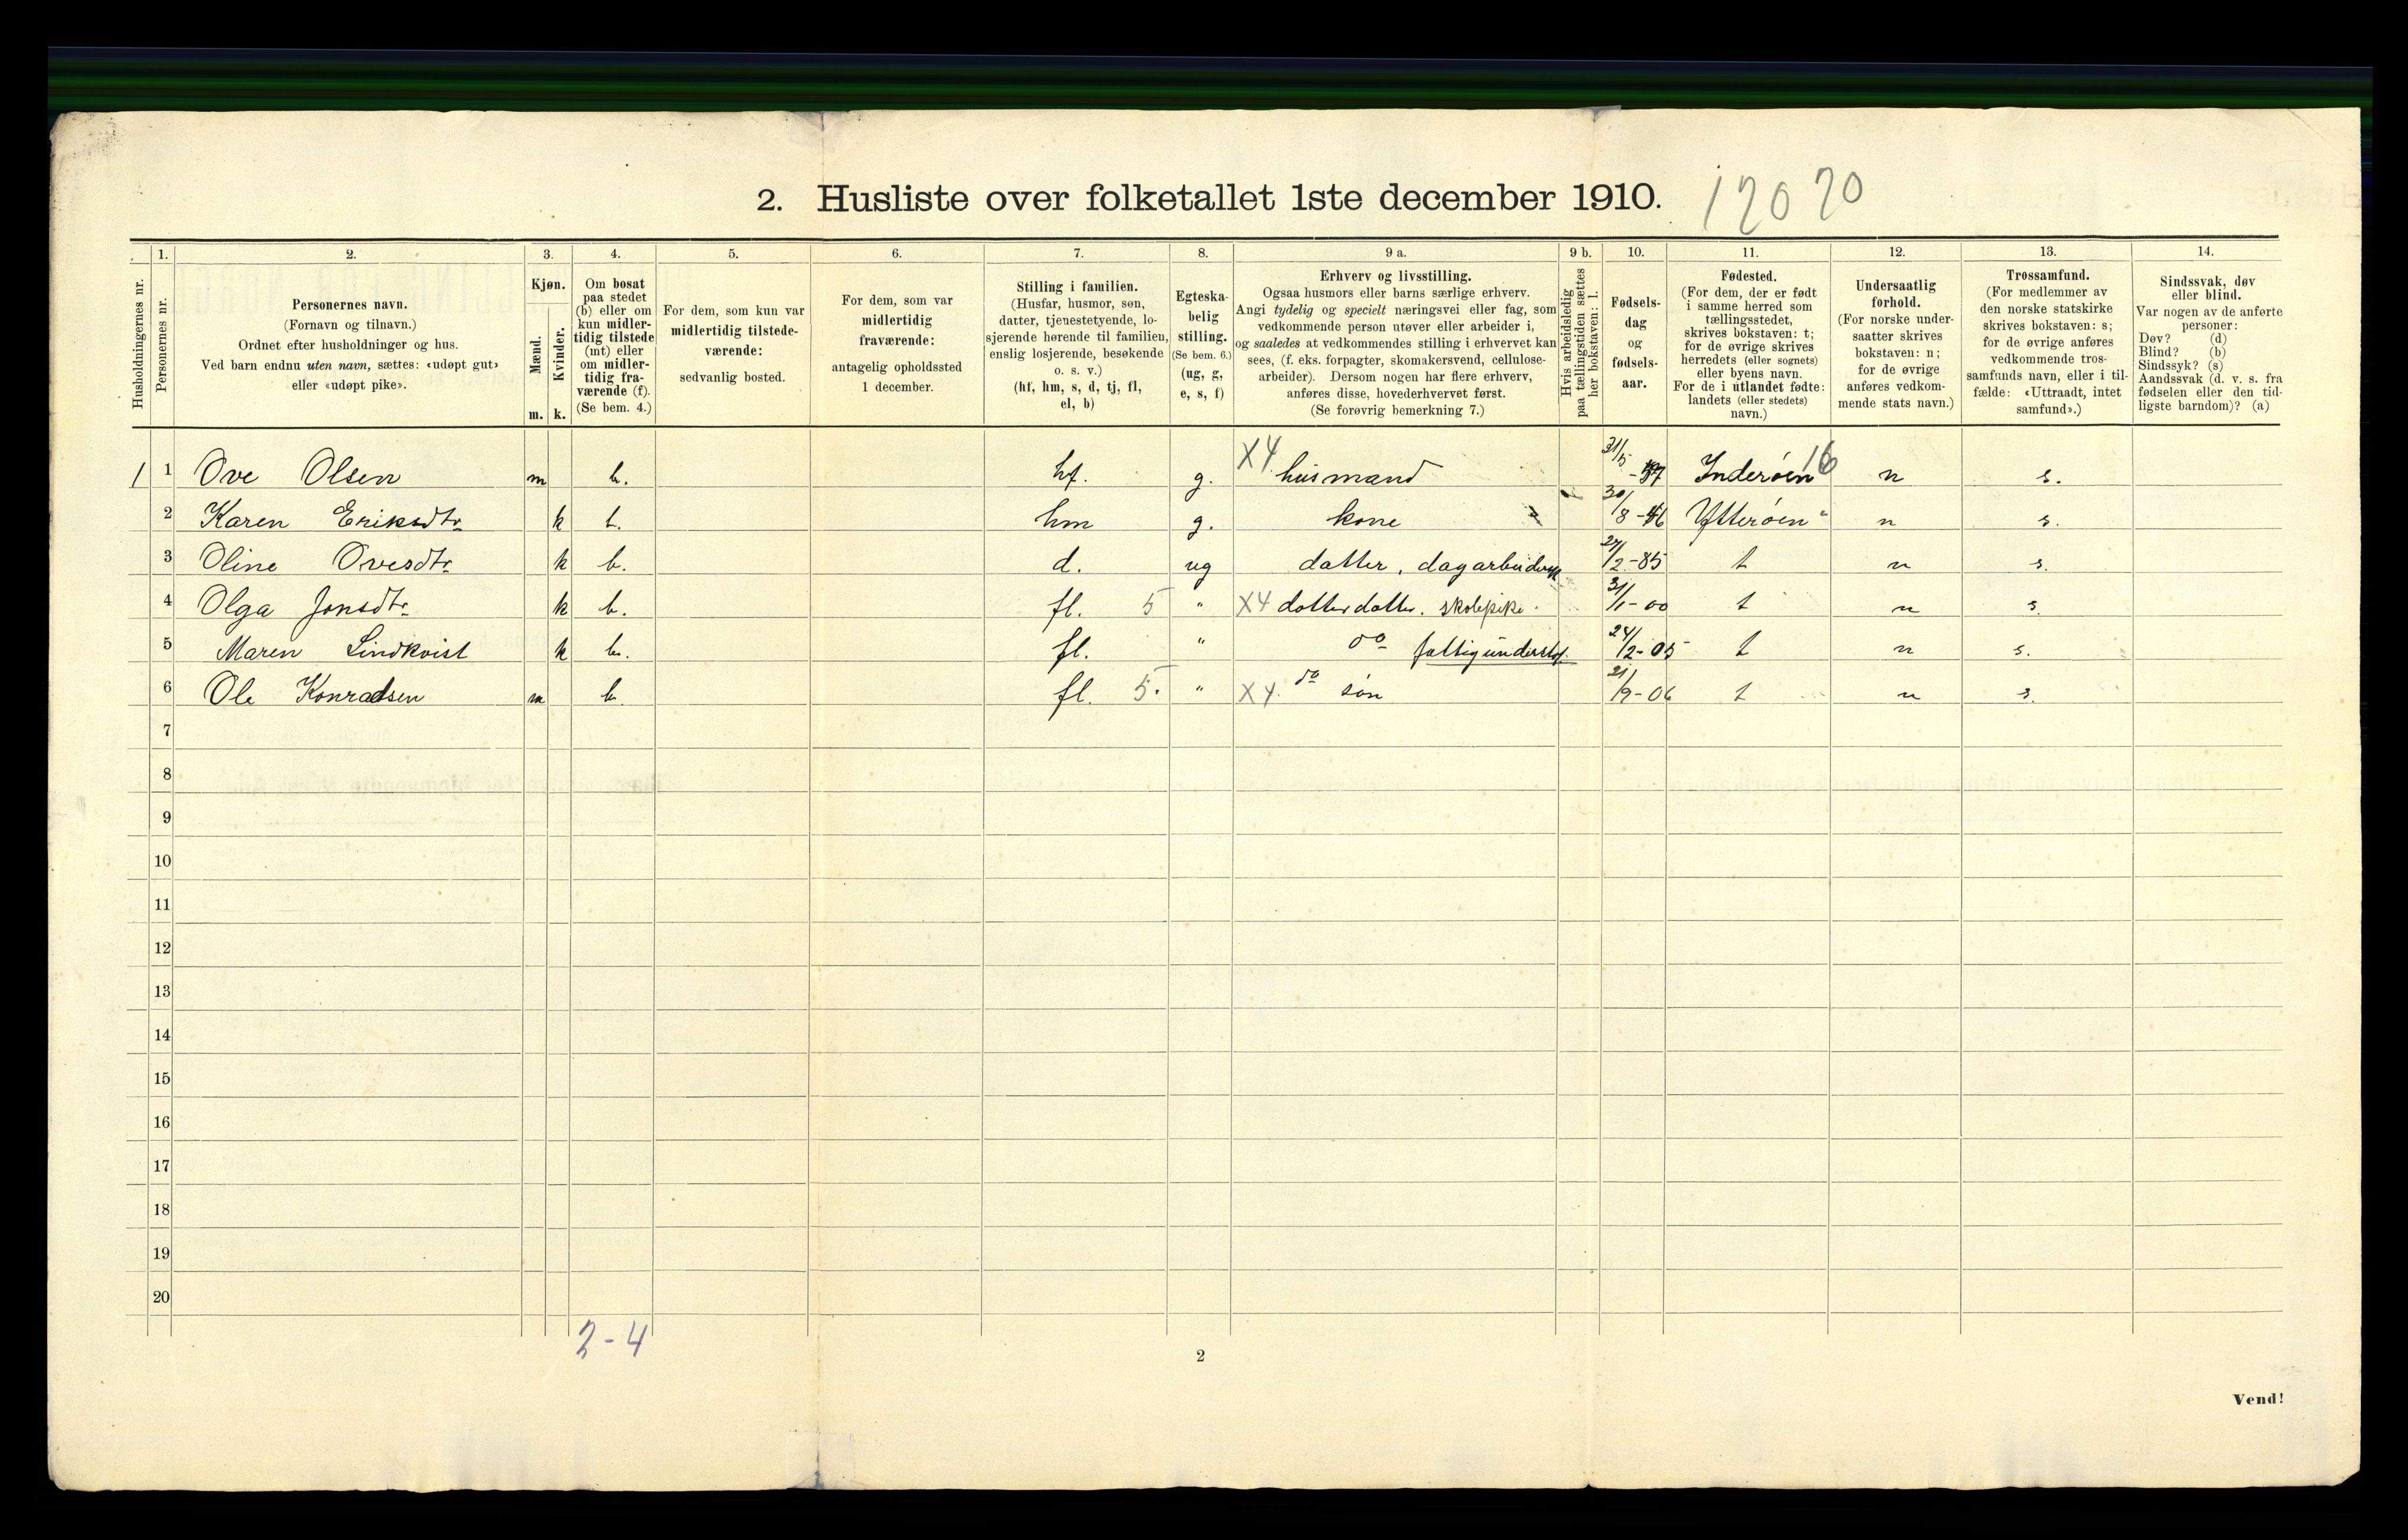 2. Husliste over folketallet 1ste december 1910. 12020
Husholdningernes nr.
1.
Personernes nr.
2.
Personernes navn.
(Fornavn og tilnavn.)
Ordnet efter husholdninger og hus.
Ved barn endnu uten navn, sættes: «udøpt gut»
eller «udøpt pike».
3.
Kjøn.
Mænd.
m.
Kvinder.
k.
4.
Om bosat
paa stedet
(b) eller om
kun midler-
tidig tilstede
(mt) eller
om midler-
tidig fra-
værende (f).
(Se bem. 4.)
5.
For dem, som kun var
midlertidig tilstede-
værende:
sedvanlig bosted.
6.
For dem, som var
midlertidig
fraværende:
antagelig opholdssted
1 december.
7.
Stilling i familien.
(Husfar, husmor, søn,
datter, tjenestetyende, lo-
sjerende hørende til familien,
enslig losjerende, besøkende
o. s. v.)
(hf, hm, s, d, tj, fl,
el, b)
8.
Egteska-
belig
stilling.
(Se bem. 6.)
(ug, g,
e, s, f)
9 a.
Erhverv og livsstilling.
Ogsaa husmors eller barns særlige erhverv.
Angi tydelig og specielt næringsvei eller fag, som
vedkommende person utøver eller arbeider i,
og saaledes at vedkommendes stilling i erhvervet kan
sees, (f. eks. forpagter, skomakersvend, cellulose-
arbeider). Dersom nogen har flere erhverv,
anføres disse, hovederhvervet først.
(Se forøvrig bemerkning 7.)
9 b.
Hvis arbeidsledig
paa tællingstiden sættes
her bokstaven: l.
10.
Fødsels-
dag
og
fødsels-
aar.
11.
Fødested.
(For dem, der er født
i samme herred som
tællingsstedet,
skrives bokstaven: t;
for de øvrige skrives
herredets (eller sognets)
eller byens navn.
For de i utlandet fødte:
landets (eller stedets)
navn.)
12.
Undersaatlig
forhold.
(For norske under-
saatter skrives
bokstaven: n;
for de øvrige
anføres vedkom-
mende stats navn.)
13.
Trossamfund.
(For medlemmer av
den norske statskirke
skrives bokstaven: s;
for de øvrige anføres
vedkommende tros-
samfunds navn, eller i til-
fælde: «Uttraadt, intet
samfund».)
14.
Sindssvak, døv
eller blind.
Var nogen av de anførte
personer:
Døv? (d)
Blind? (b)
Sindssyk? (s)
Aandssvak (d. v. s. fra
fødselen eller den tid-
ligste barndom)? (a)
1 1 Ove Olsen m b. hf. g. X4 husmand 31/5 Inderøen 16 n s.
2 Karen Eriksdtr k b. hm g. kone 30/8 Ytterøen " n s.
3 Oline Ovesdtr k b. d. ug datter, dagarbeiderske 27/2-85 t n s.
4 Olga Jonsdtr k b. fl. 5 " X4 datterdatter. skolepike 31/1-00 t n s.
5 Maren Lindkvist k b. fl. " do fattigunderstøt. 24/2-05 t n s.
6 Ole Konradsen m b. fl. 5. " X4. do søn 21/9-06 t n s.
7
8
9
10
11
12
13
14
15
16
17
18
19
20
2-4
2
Vend!